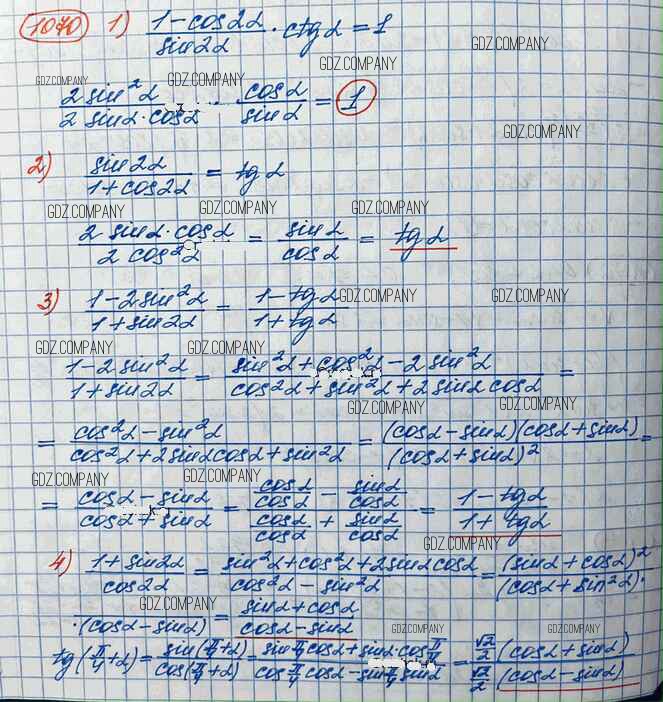 1070 1) (1-cos2α)/(sin2α) · ctgα = 1
GDZ.COMPANY
GDZ.COMPANY GDZ.COMPANY GDZ.COMPANY
(2 sin²α)/(2 sinα·cosα) · (cosα)/(sinα) = 1
GDZ.COMPANY
2) (sin2α)/(1+cos2α) = tgα
GDZ.COMPANY GDZ.COMPANY GDZ.COMPANY
(2 sinα·cosα)/(2 cos²α) = (sinα)/(cosα) = tgα
3) (1-2sin²α)/(1+sin2α) = (1-tgα)/(1+tgα) GDZ.COMPANY GDZ.COMPANY
GDZ.COMPANY GDZ.COMPANY
(1-2sin²α)/(1+sin2α) = (sin²α+cos²α-2sin²α)/(cos²α+sin²α+2sinαcosα) =
GDZ.COMPANY GDZ.COMPANY
= (cos²α-sin²α)/(cos²α+2sinαcosα+sin²α) = ((cosα-sinα)(cosα+sinα))/((cosα+sinα)²) =
GDZ.COMPANY GDZ.COMPANY
= (cosα-sinα)/(cosα+sinα) = (cosα/cosα - sinα/cosα)/(cosα/cosα + sinα/cosα) = (1-tgα)/(1+tgα)
GDZ.COMPANY
4) (1+sin2α)/(cos2α) = (sin²α+cos²α+2sinαcosα)/(cos²α-sin²α) = (sinα+cosα)²/(cosα+sin²α)·
GDZ.COMPANY
·(cosα-sinα) = (sinα+cosα)/(cosα-sinα)
GDZ.COMPANY GDZ.COMPANY GDZ.COMPANY
tg(π/4+α) = (sin(π/4+α))/(cos(π/4+α)) = (sin π/4 cosα + sinα·cos π/4)/(cos π/4 cosα - sin π/4 sinα) = (√2/2 (cosα+sinα))/(√2/2 (cosα-sinα))
GDZ.COMPANY